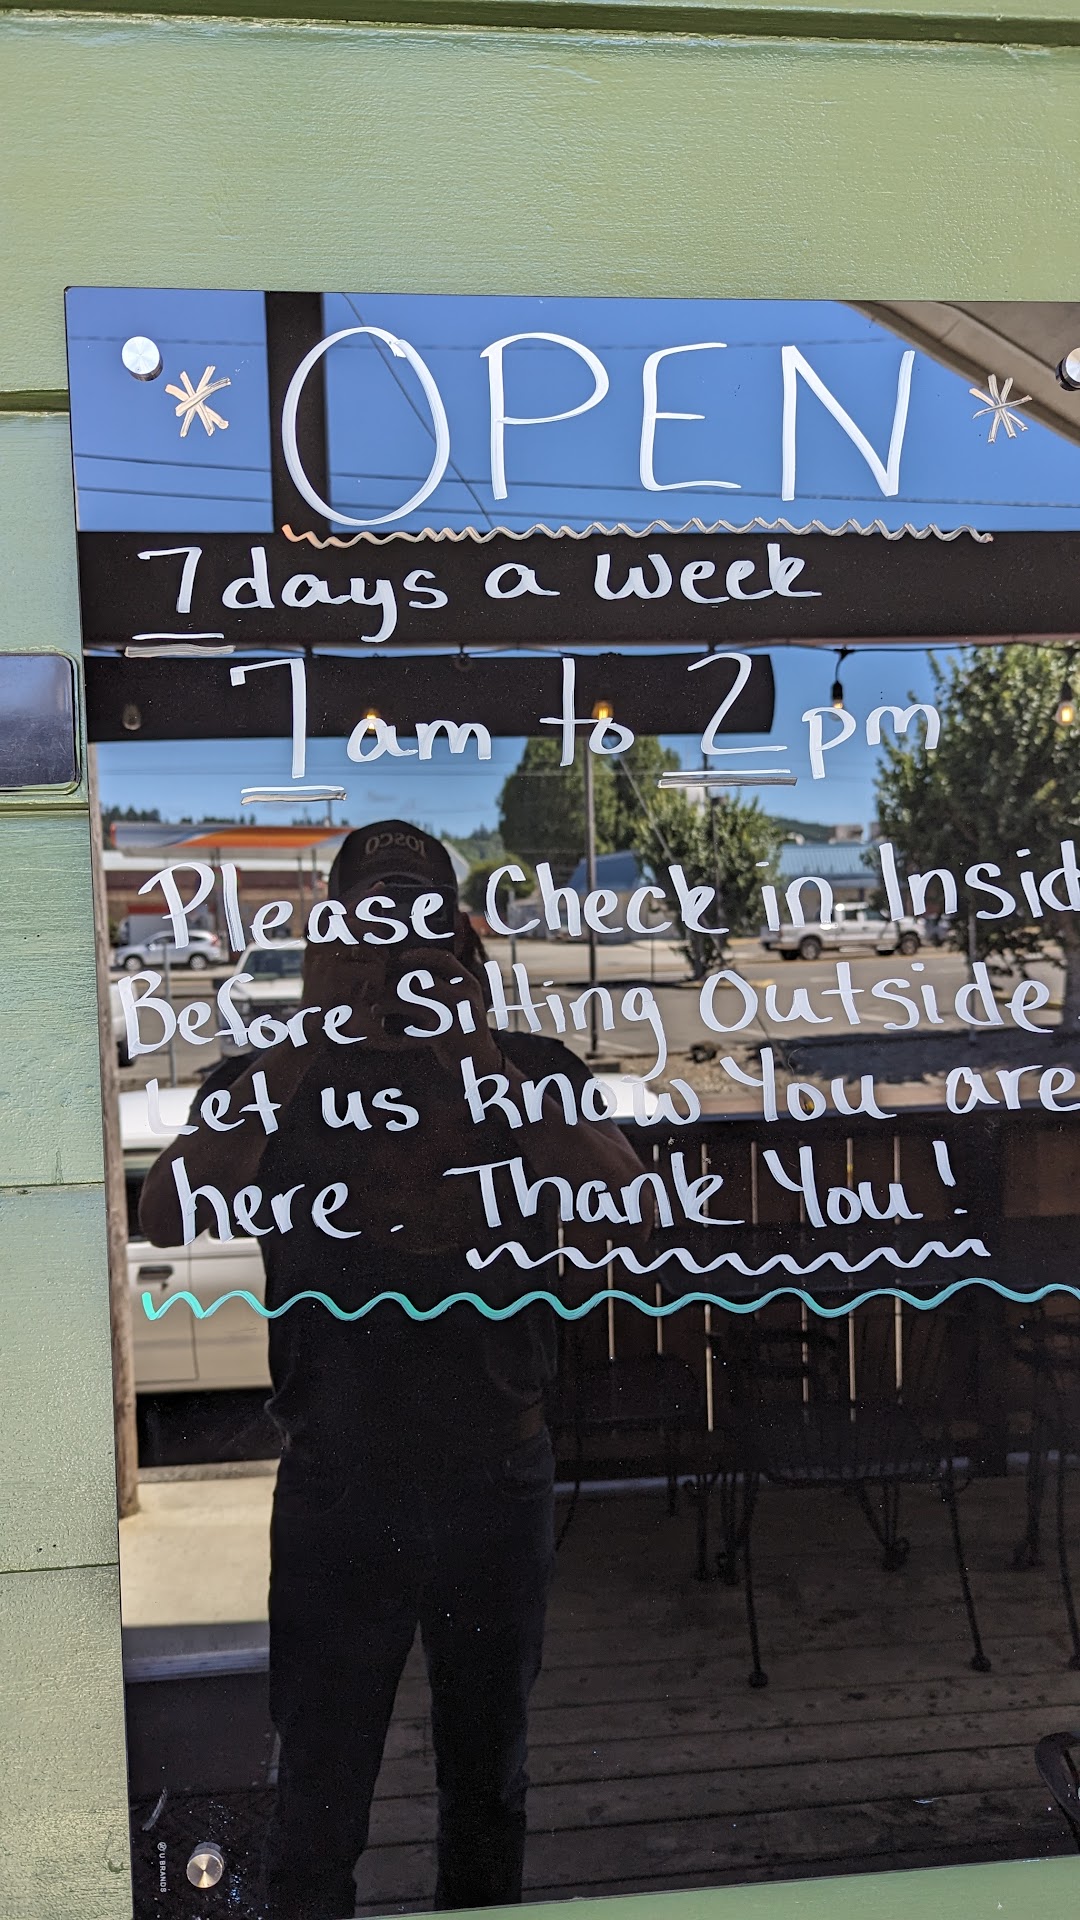 * OPEN *
7 days a week
7 am to 2 pm
Please Check in Insid
Before Sitting Outside.
Let us know You are
here. Thank You!
U BRANDS